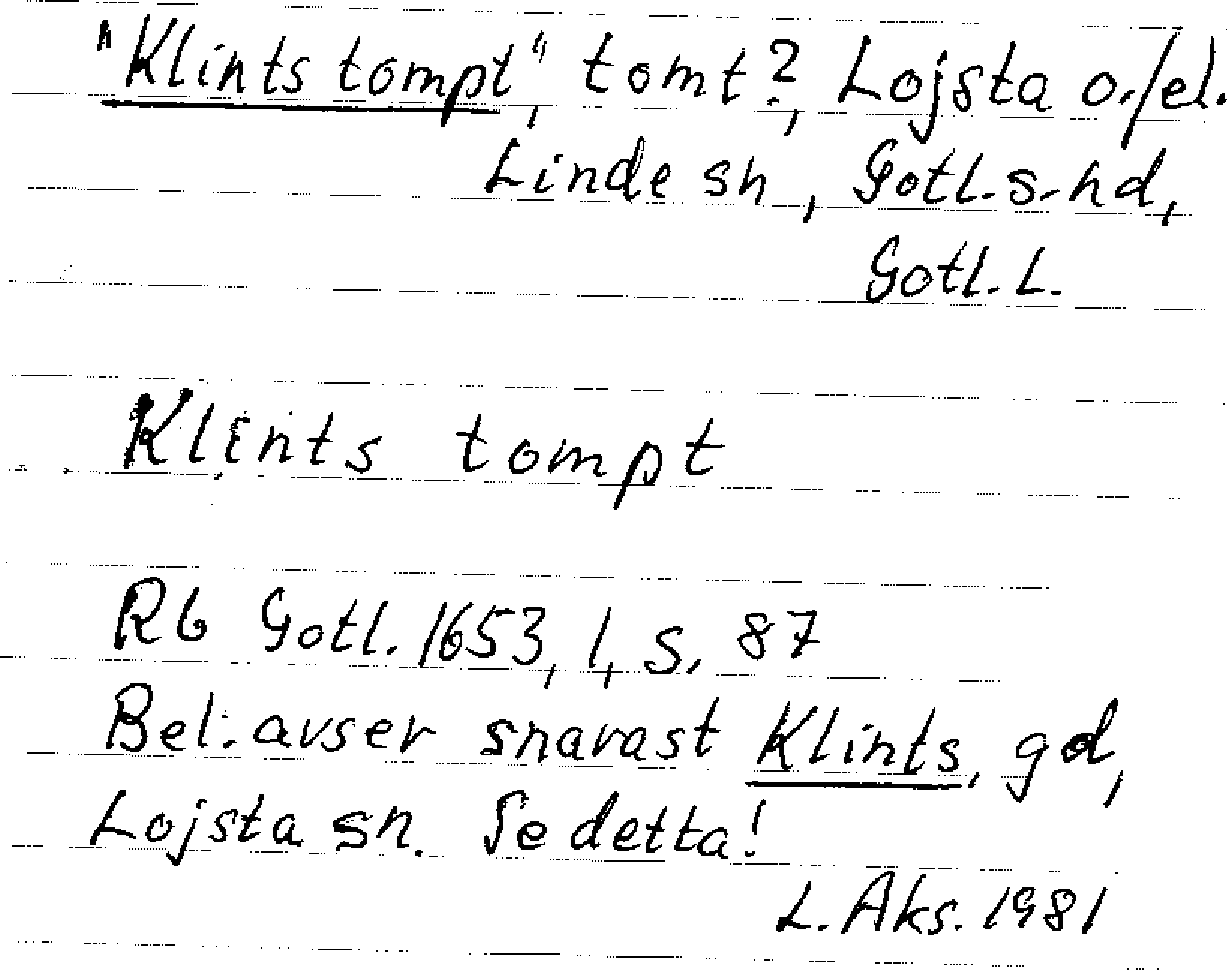 "Klints tompt", tomt?, Lojsta o./el.
Linde sn, Gotl. s. hd,
Gotl. L.
Klints tompt
Rb Gotl. 1653, 1, s. 87
Bel. avser snarast Klints, gd,
Lojsta sn. Se detta!
L. Aks. 1981